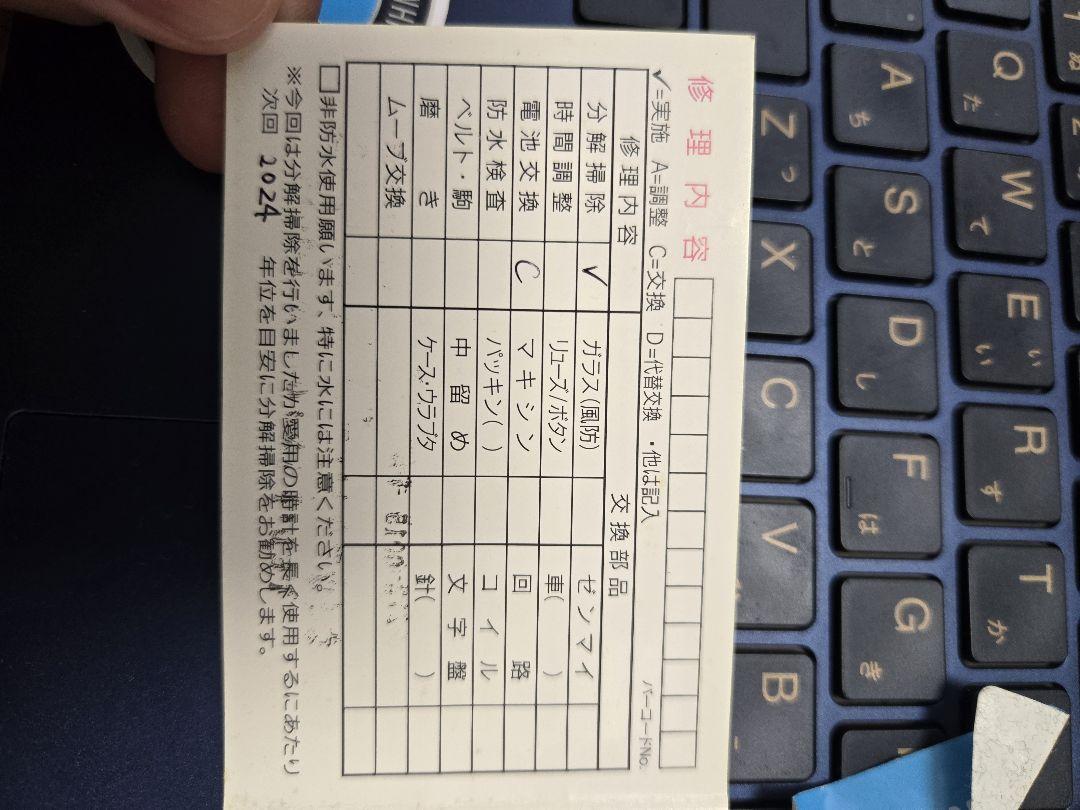 修理内容
✓=実施 A=調整 C=交換 D=代替交換 ・他は記入
バーコードNo.
修理内容 交換部品
分解掃除 ✓ ガラス(風防) ゼンマイ
時間調整 リューズ/ボタン 車( )
電池交換 C マキシン 回路
防水検査 パッキン( ) コイル
ベルト・駒 中留め 文字盤
磨き ケース・ウラブタ 針( )
ムーブ交換
□非防水使用願います、特に水には注意ください。
※今回は分解掃除を行いましたが愛用の時計を長く使用するにあたり
次回 2024 年位を目安に分解掃除をお勧めします。
Q た
W て
E い ぃ
R す
T か
A ち
S と
D し
F は
G き
Z つ っ
X
C
V
B